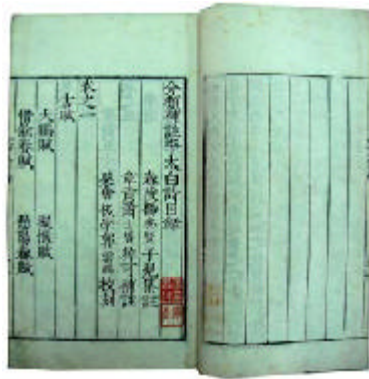 分類補註李太白詩目錄
舂陵楊齊賢子見集註
章貢蕭士贇粹可補註
吳會後學郭雲鵬校刻
卷之一
古賦
大鵬賦　擬恨賦
惜餘春賦　愁陽春賦